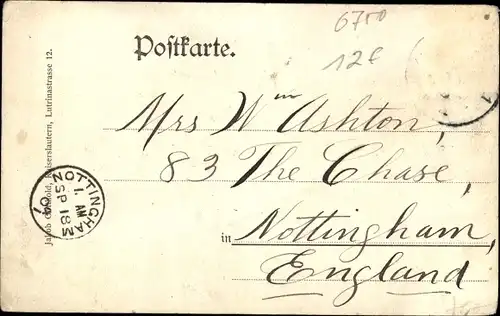 6700
12€
Postkarte.
Mrs Wm Ashton,
83 The Chase,
in Nottingham,
England
NOTTINGHAM
1. AM
SP 18
Kaiserslautern, Lutrinastrasse 12.